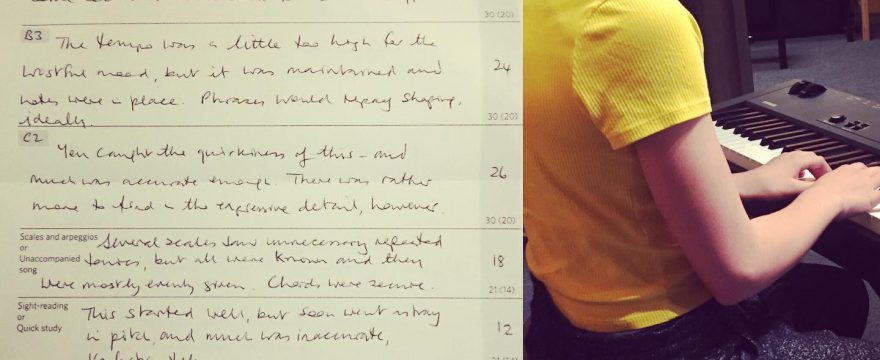 30 (20)
B3 The tempo was a little too high for the
wistful mood, but it was maintained and 24
notes were in place. Phrases would repay shaping,
ideally. 30 (20)
C2
You caught the quirkiness of this – and
much was accurate enough. There was rather 26
more to find in the expressive detail, however.
30 (20)
Scales and arpeggios Several scales saw unnecessary repeated
or
Unaccompanied tonics, but all were known and they 18
song
were mostly evenly given. Chords were secure. 21 (14)
Sight-reading This started well, but soon went astray
or
Quick study in pitch, and much was inaccurate, 12